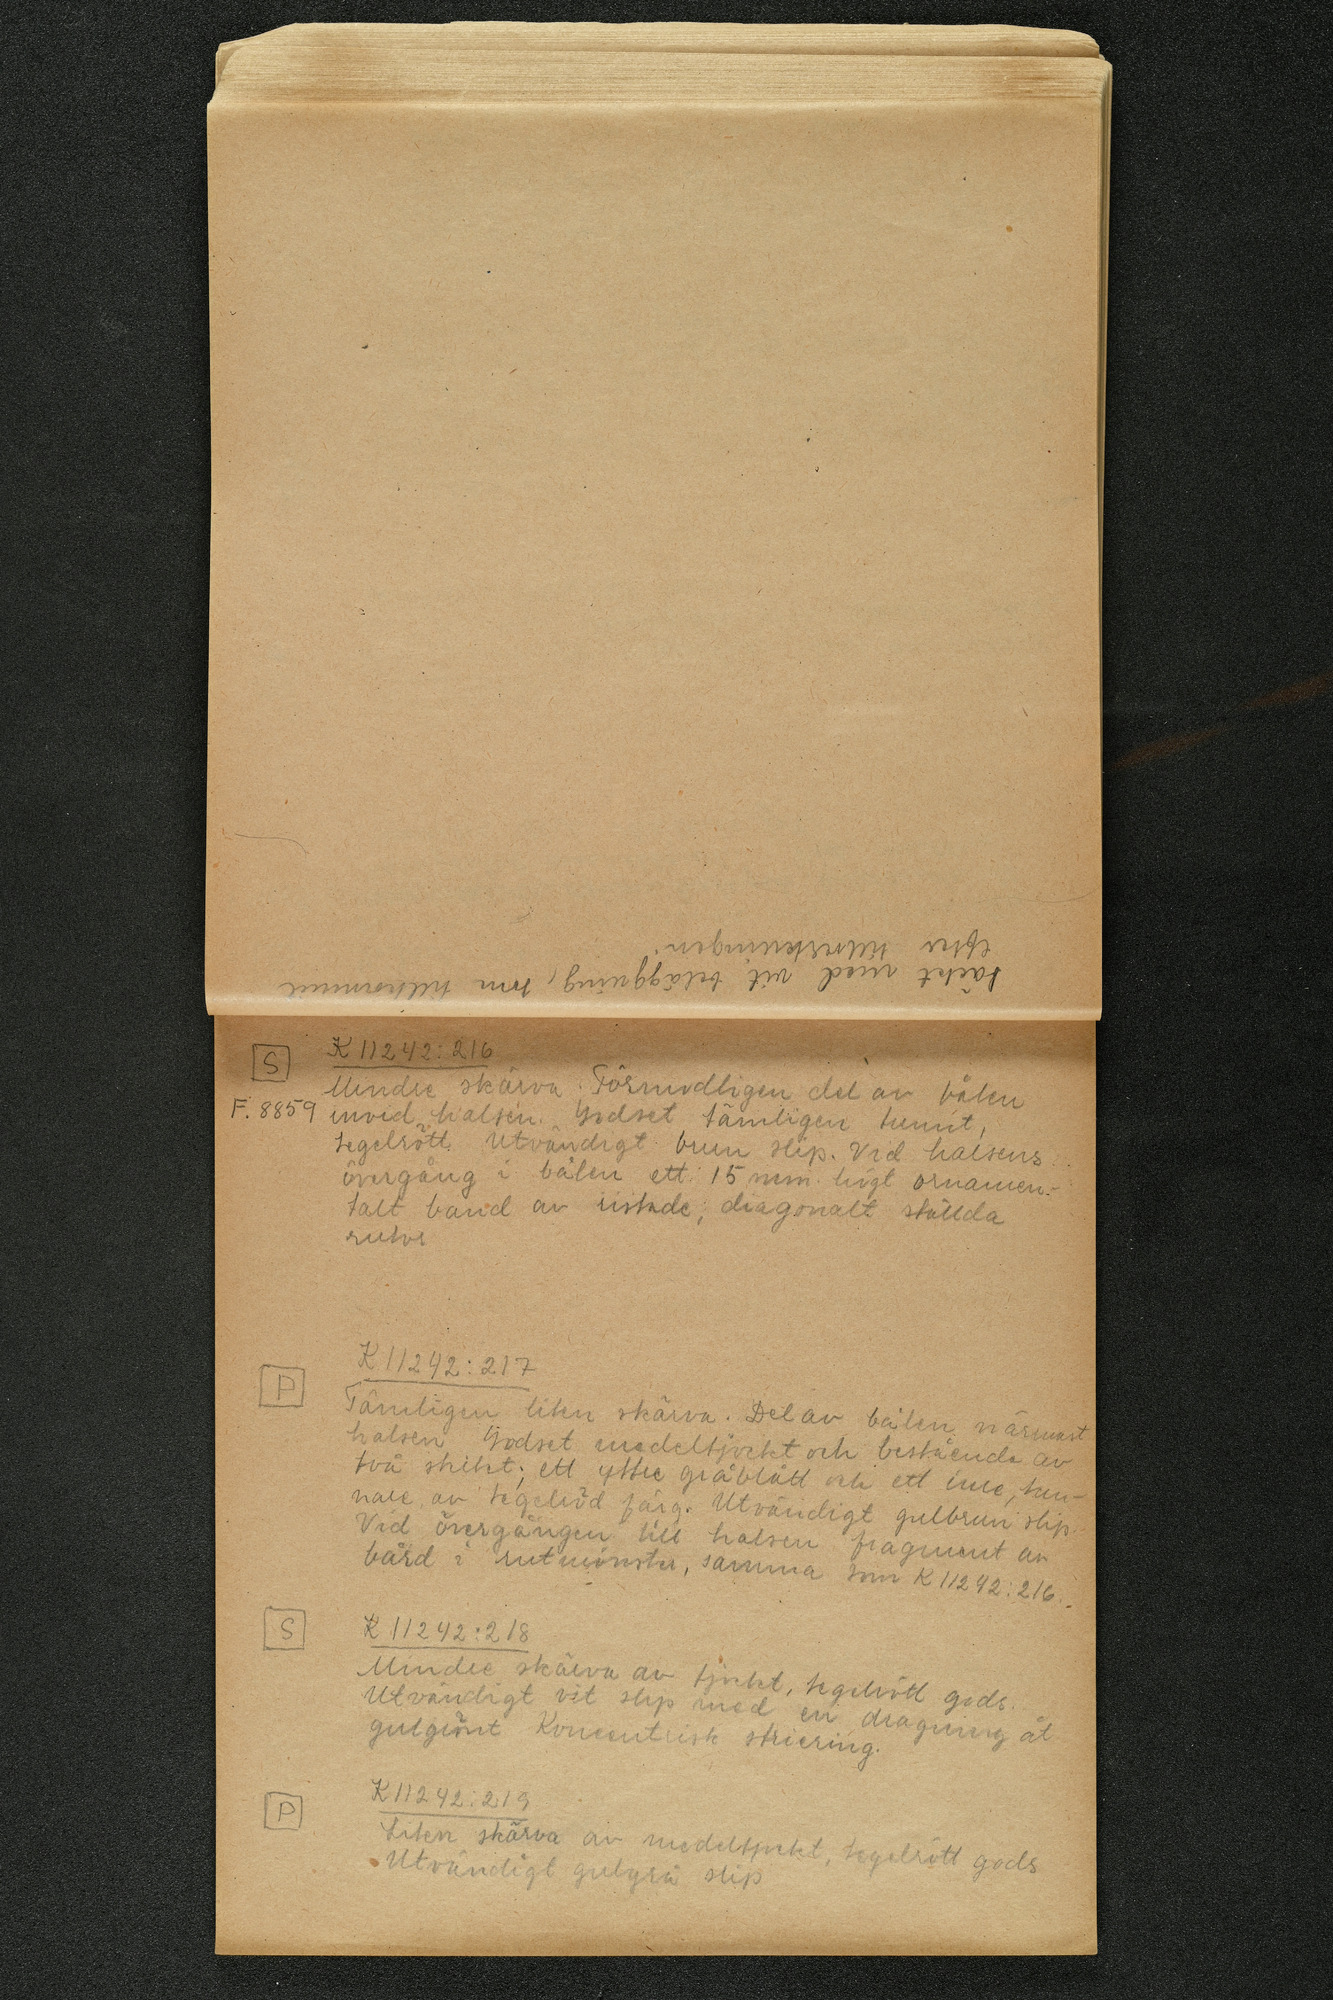 täckt med vit beläggning, som tillkommit
efter tillverkningen.
S K 11242:216
Mindre skärva. Förmodligen del av bålen
F. 8859 invid halsen. Godset tämligen tunnt,
tegelrött. Utvändigt brun slip. Vid halsens
övergång i bålen ett 15 mm högt ornamen-
talt band av ristade, diagonalt ställda
rutor
P K 11242:217
Tämligen liten skärva. Del av bålen närmast
halsen Godset medeltjockt och bestående av
två skikt; ett yttre gråblått och ett inre, tun-
nare av tegelröd färg. Utvändigt gulbrun slip.
Vid övergången till halsen fragment av
bård i rutmönster, samma som K 11242:216.
S K 11242:218
Mindre skärva av tjockt, tegelrött gods.
Utvändigt vit slip med en dragning åt
gulgrönt Koncentrisk striering.
P K 11242:219
Liten skärva av medeltjockt, tegelrött gods
Utvändigt gulgrå slip